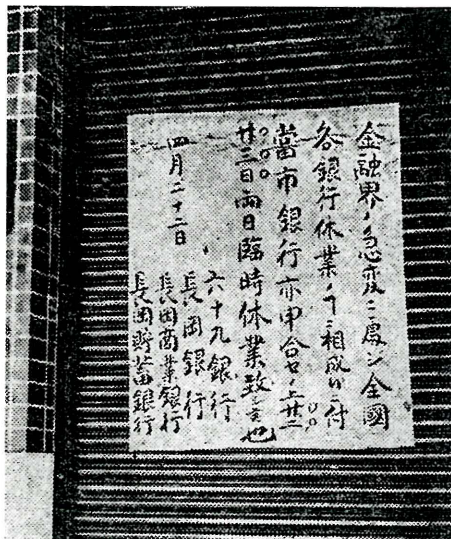 金融界ノ急変ニ處シ全國
各銀行休業ノ千ニ相成候ニ付
當市銀行亦申合セノ上廿二
廿三日両日臨時休業致シ候也
四月二十二日
六十九銀行
長岡銀行
長岡商業銀行
長岡貯蓄銀行